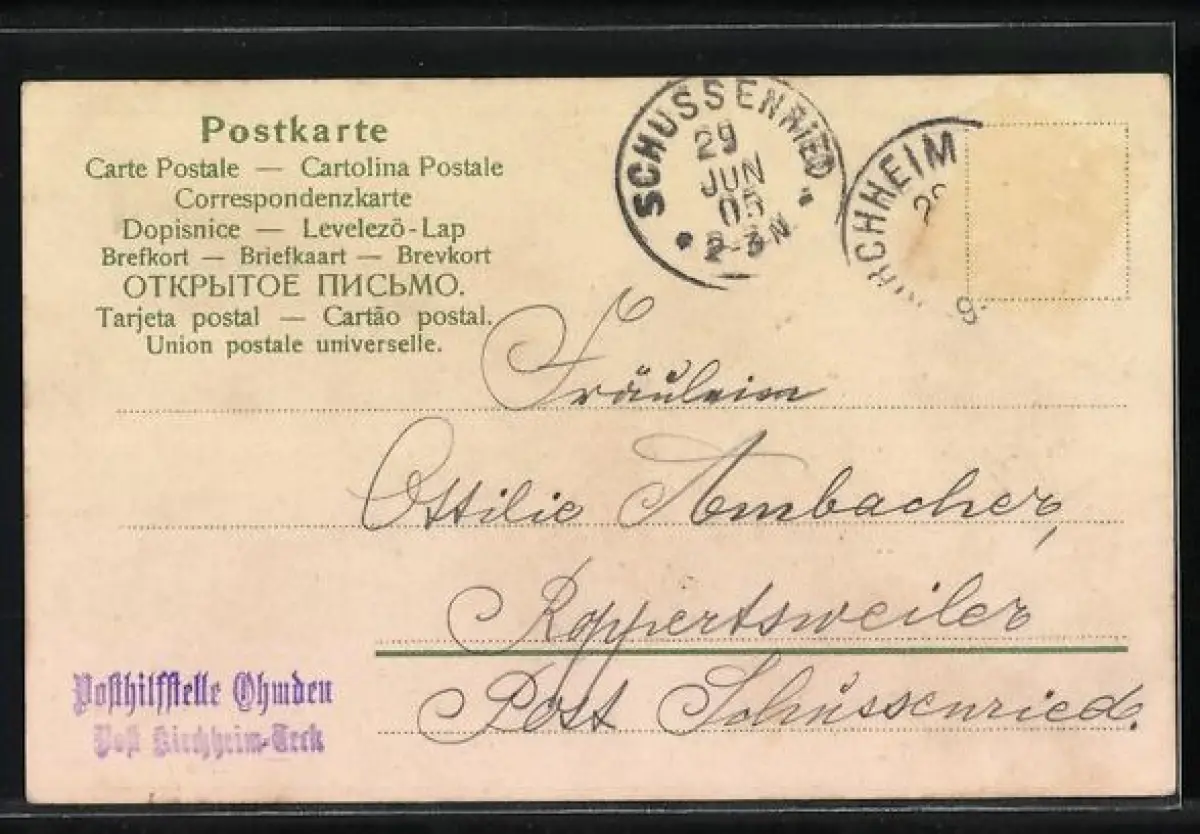 Postkarte
Carte Postale — Cartolina Postale
Correspondenzkarte
Dopisnice — Levelezö-Lap
Brefkort — Briefkaart — Brevkort
ОТКРЫТОЕ ПИСЬМО.
Tarjeta postal — Cartão postal.
Union postale universelle.
SCHUSSENRIED
29
JUN
05
2-3N
RCHHEIM
Fräulein
Ottilie Ambacher,
Roppertsweiler
Post Schussenried.
Posthilfstelle Ohmden
Post Kirchheim-Teck